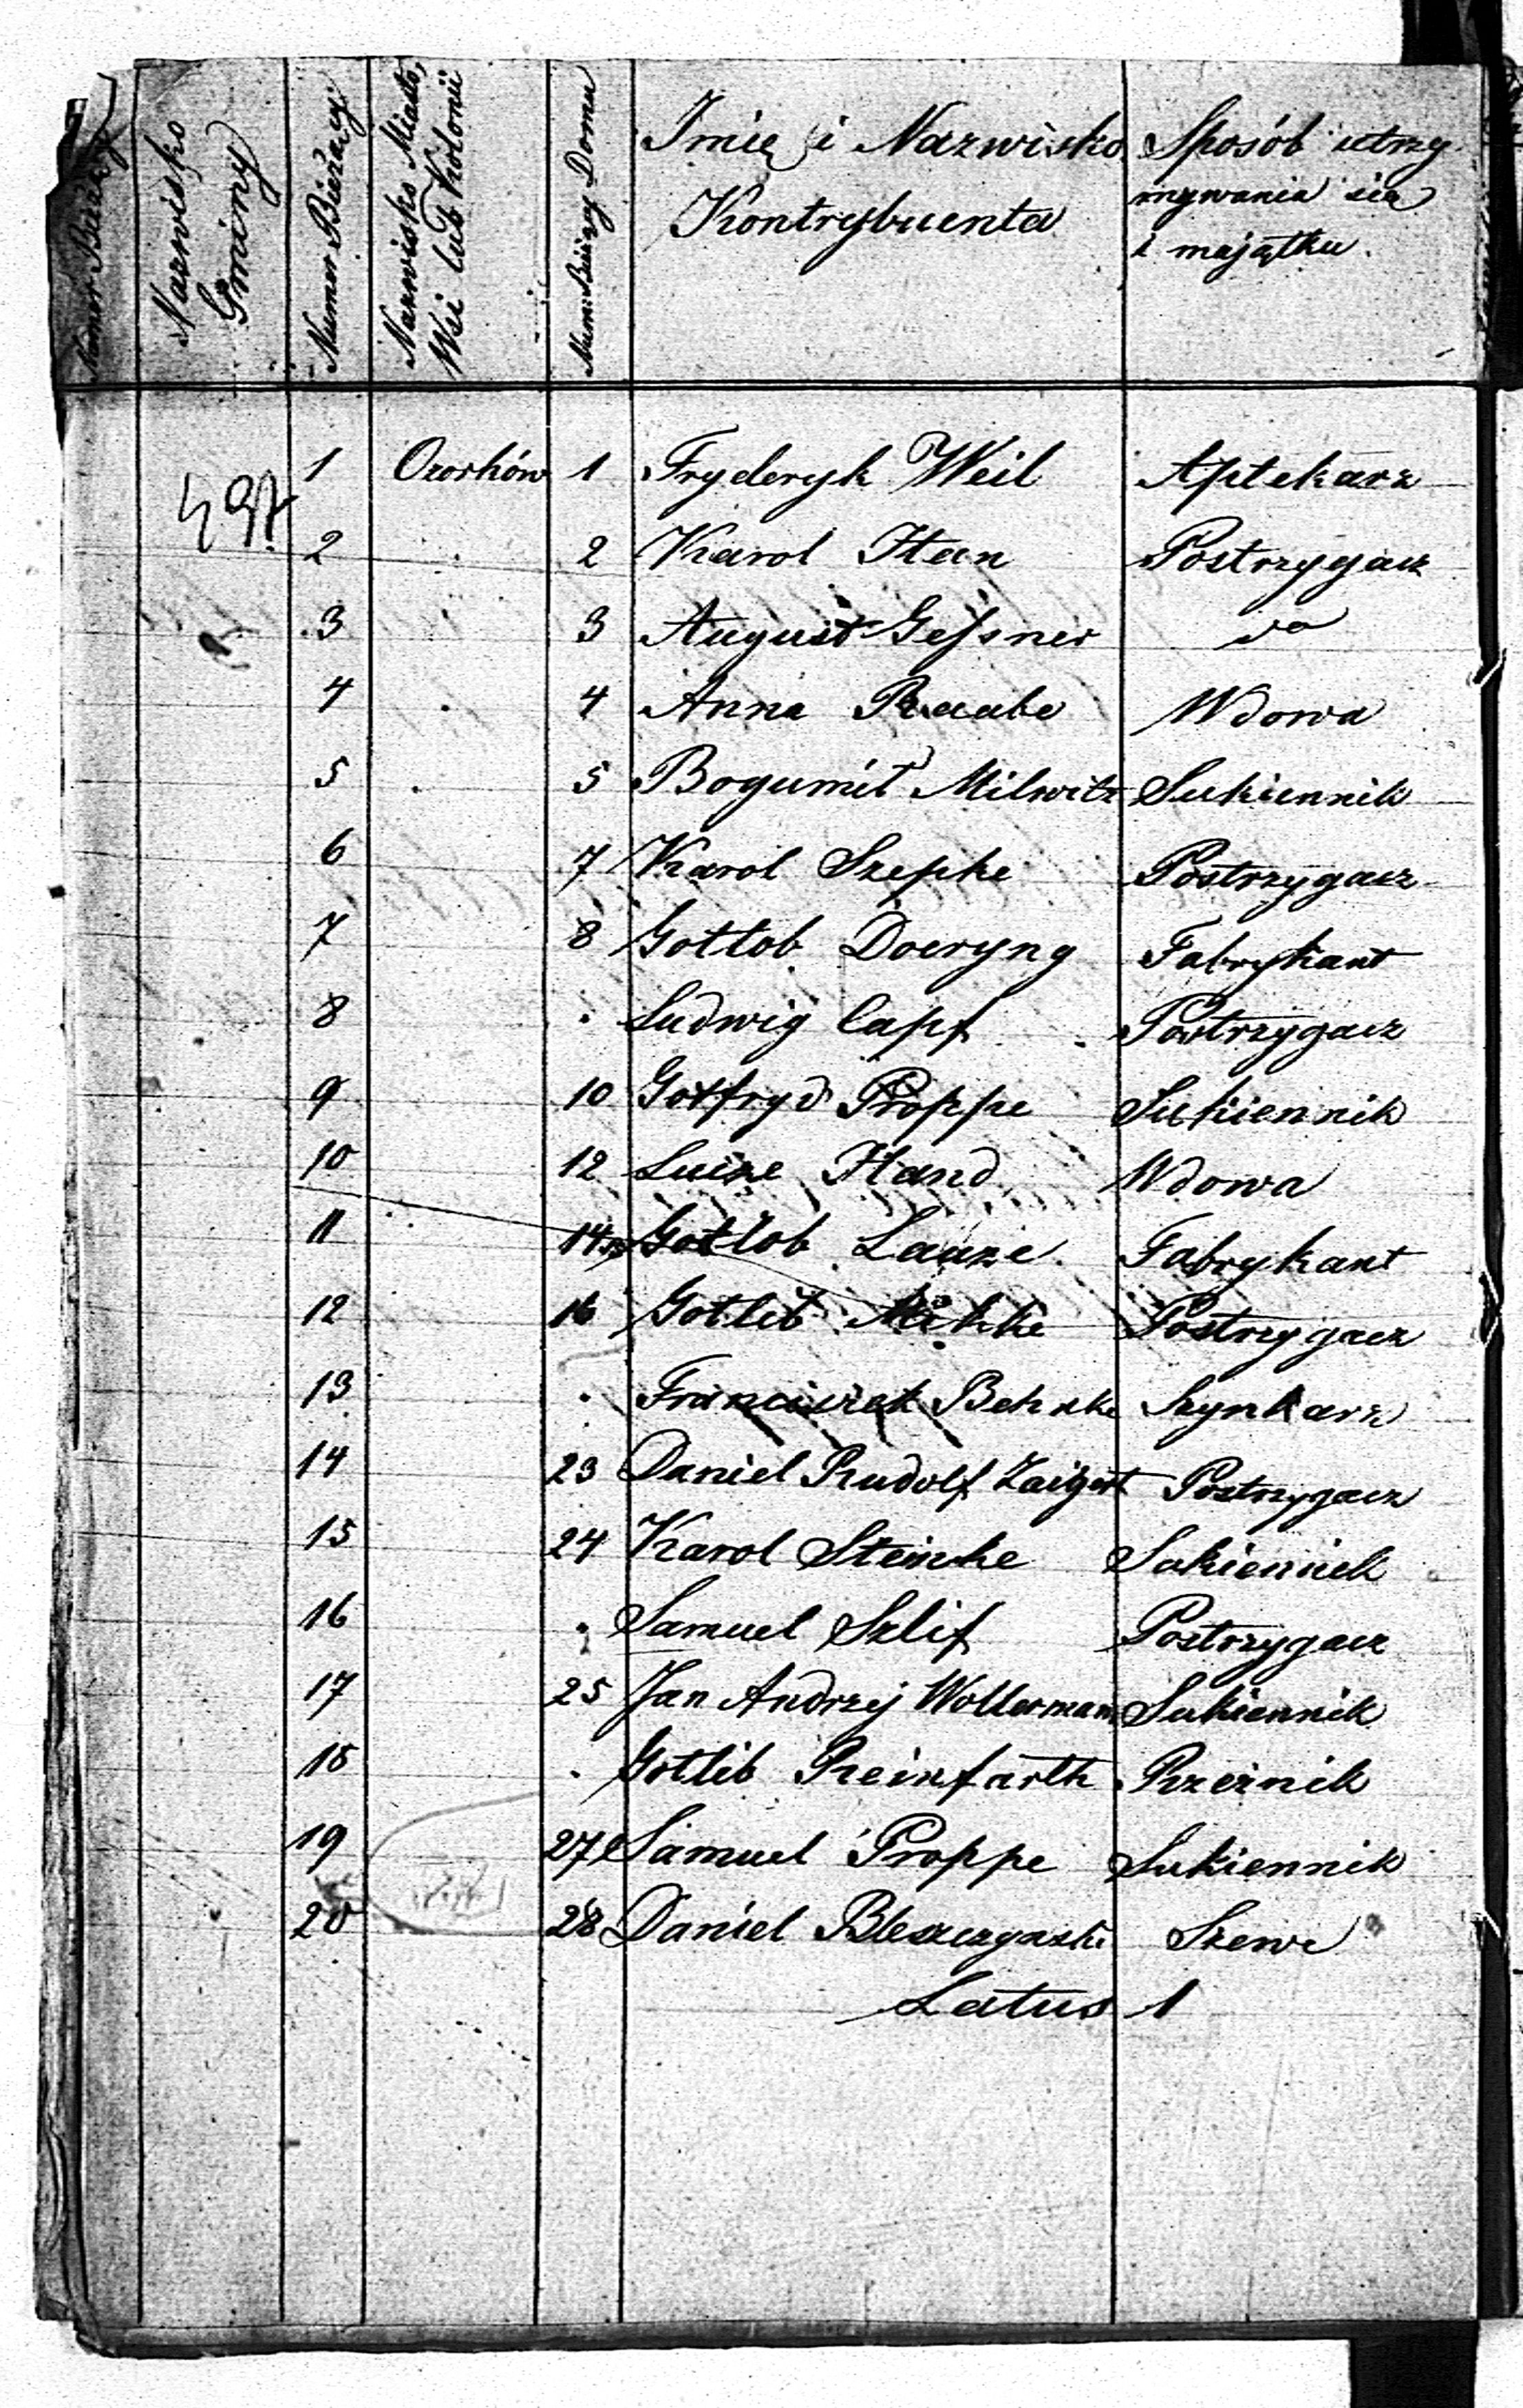 Numer Bieżący
Nazwisko
Gminy
Numer Bieżący
Nazwisko Miasta,
Wsi lub Kolonii
Numer Bieżący Domu
Imię i Nazwisko
Kontrybuenta
Sposób utrzy
mywania się
i majątku.
1 Ozorków 1 Fryderyk Weil Aptekarz
2 2 Karol Han Postrzygacz
3 3 August Gessner do
4 4 Anna Raabe Wdowa
5 5 Bogumił Milwitz Sukiennik
6 7 Karol Szepke Postrzygacz
7 8 Gottob Doeryng Fabrykant
8 Ludwig Capf Postrzygacz
9 10 Gotfryd Proppe Sukiennik
10 12 Luize Hand Wdowa
11 14 Gotlob Lauze Fabrykant
12 16 Gotlib Mikke Postrzygacz
13 Franciszek Behnke Szynkarz
14 23 Daniel Rudolf Zaigert Postrzygacz
15 24 Karol Steinke Sukiennik
16 Samuel Szlif Postrzygacz
17 25 Jan Andrzej Wollermann Sukiennik
18 Gotlib Reinfarth Rzeźnik
19 27 Samuel Proppe Sukiennik
20 28 Daniel Bleszczynski Szewc
Latus 1